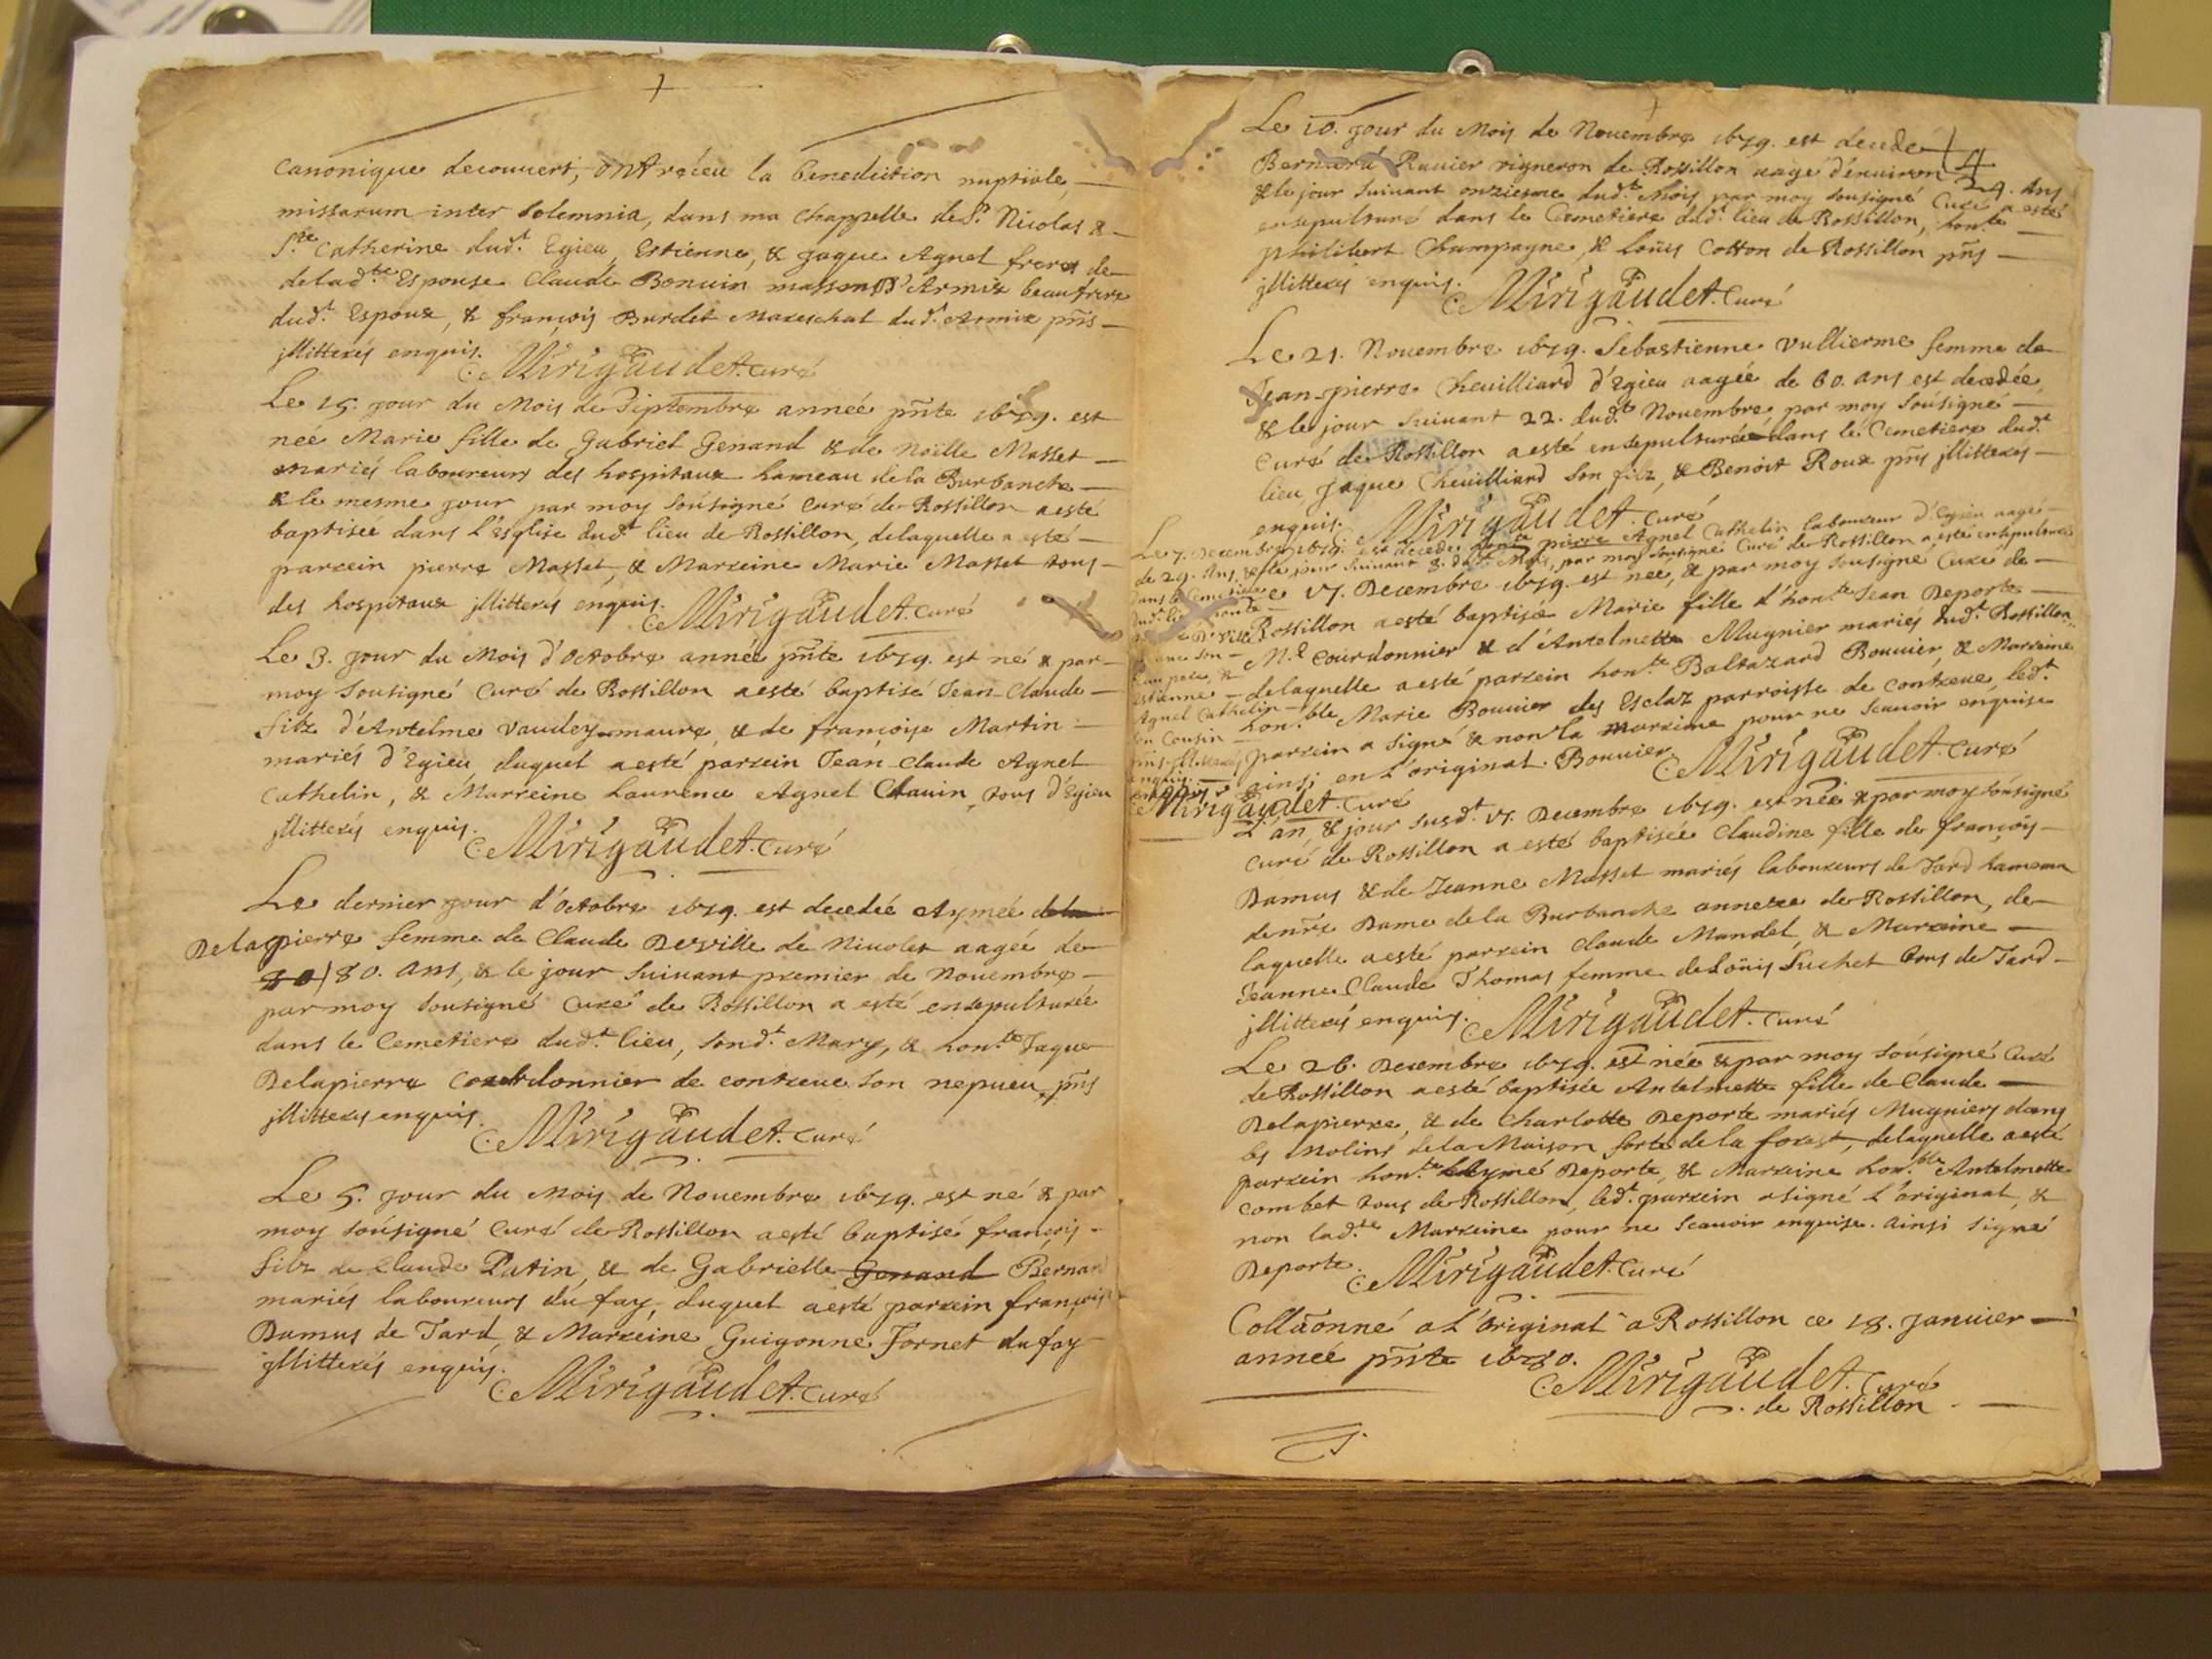 canonique decouuert, ont receu la benediction nuptiale,
missarum inter solemnia, dans ma chappelle de St. Nicolas &
Ste. Catherine dudt. Egieu, Estienne, & Jaque Agnel freres de
deladte Espouse Claude Bonuin masson d'Armix beaufrere
dudt. Espoux, & françois Burdet Mareschal dudt. Armix pñs
jllitterés enquis. Mirigaudet. Curé
Le 15. jour du Mois de Septembre année pñte 1679. est
neé Marie fille de Gabriel Genand & de Noëlle Masset
mariés laboureurs des hospitaux hameau de la Burbanche
& le mesme jour par moy sousigné Curé de Rossillon a esté
baptiseé dans l'Esglise dudt lieu de Rossillon, de laquelle a esté
parrein pierre Masset, & Marreine Marie Masset tous
des hospitaux jllitterés enquis. Mirigaudet. Curé
Le 3. jour du Mois d'Octobre anneé pñte 1679. est né & par
moy sousigné Curé de Rossillon a esté baptisé Jean-Claude
filz d'Antelme Vaudey maure, & de françoise Martin
mariés d'Egieu duquel a esté parrein Jean-Claude Agnel
Cathelin, & Marreine Laurence Agnel Chauin, tous d'Egieu
jllitterés enquis. Mirigaudet. Curé
Le dernier jour d'Octobre 1679. est decedeé Aymeé
Delapierre femme de Claude Deville de Niuolet aageé de
80. ans, & le jour suiuant premier de Nouembre
par moy sousigné Curé de Rossillon a esté ensepultureé
dans le Cemetiere dudt. lieu, sondt. Mary, & honte Jaque
Delapierre cordonnier de contreue son nepueu, pñs
jllitterés enquis. Mirigaudet. Curé
Le 5. jour du Mois de Nouembre 1679. est né & par
moy sousigné Curé de Rossillon a esté baptisé françois
filz de Claude Patin, & de Gabrielle Genand Bernar
mariés laboureurs du fay, duquel a esté parrein françois
Dumus de Tard, & Marreine Guigonne Jornet du fay
jllitterés enquis. Mirigaudet. Curé
Le 10. jour du Mois de Nouembre 1679. est decedé
Bernard Rauier vigneron de Rossillon aagé d'enuiron 24. Ans
& le jour suiuant onziesme dudt. Mois par moy sousigné Curé a esté
ensepulturé dans le Cemetiere dudt. lieu de Rossillon, honte
philibert Champagne, & Loüis Cotton de Rossillon pñs
jllitterés enquis. Mirigaudet. Curé
Le 21. Nouembre 1679. Sebastienne Vullierme femme de
Jean-pierre Cheuilliard d'Egieu aageé de 60. ans est decedeé,
& le jour suiuant 22. dudt. Nouembre, par moy sousigné
Curé de Rossillon a esté ensepultureé dans le Cemetiere dudt.
lieu, Jaque Cheuilliard son filz, & Benoit Roux pñs jllitterés
enquis. Mirigaudet. Curé
Le 7. Decembre 1679. est decedé honte pierre Agnel Cathelin laboureur d'Egieu aagé
de 29. Ans, & le jour suiuant 8. dudt Mois, par moy sousigné Curé de Rossillon a esté ensepulturé
dans le Cemetiere
dudt. lieu
son
beau pere, &
Estienne
Agnel Cathelin
son Cousin
pñs jllitterés
enquis.
Mirigaudet. Curé
Le 17. Decembre 1679. est neé, & par moy sousigné Curé de
Rossillon a esté baptiseé Marie fille d'honte Jean Deporte
Me. courdonnier & d'Antelmette Mugnier mariés dudt. Rossillon,
delaquelle a esté parrein honte. Baltazard Bouuier, & Marreine
honble Marie Bouuier des Esclaz parroisse de contreue, ledt
parrein a signé & non la marreine pour ne scauoir enquise
ainsi en l'original. Bouuier. Mirigaudet. Curé
L'an, & jour susdt. 17. Decembre 1679. est neé & par moy sousigné
Curé de Rossillon a esté baptiseé Claudine fille de françois
Dumus & de Jeanne Masset mariés laboureurs de Tard hameau
de nre Dame de la Burbanche annexe de Rossillon, de
laquelle a esté parrein Claude Mandel, & Marreine
Jeanne Claude Thomas femme de Loüis Suchet tous de Tard
jllitterés enquis. Mirigaudet. Curé
Le 26. Decembre 1679. est neé & par moy sousigné Curé
de Rossillon a esté baptiseé Antelmette fille de Claude
Delapierre, & de Charlotte Deporte mariés Mugniers dans
les Molins de la Maison forte de la forest, delaquelle a esté
parrein honte. Aymé Deporte, & Marreine honble Antelmette
Combet tous de Rossillon, ledt. parrein a signé l'original, &
non ladte Marreine pour ne scauoir enquise. ainsi signé
Deporte. Mirigaudet. Curé
Collãonné a l'original a Rossillon ce 18. Januier
anneé pñte 1680. Mirigaudet. Curé
de Rossillon